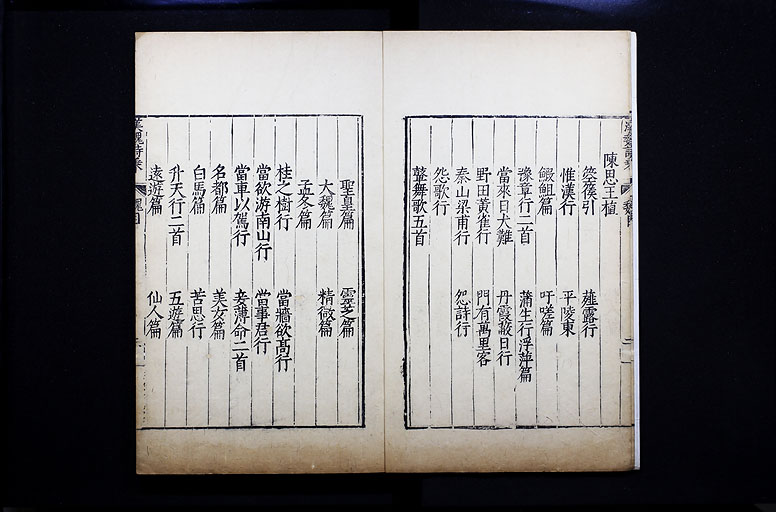 陳思王植
箜篌引 薤露行
惟漢行 平陵東
鰕䱇篇 吁嗟篇
豫章行二首 蒲生行浮萍篇
當來日大難 丹霞蔽日行
野田黃雀行 門有萬里客
泰山梁甫行 怨詩行
怨歌行
鼙舞歌五首
聖皇篇 靈芝篇
大魏篇 精微篇
孟冬篇
桂之樹行 當牆欲高行
當欲游南山行 當事君行
當車以駕行 妾薄命二首
名都篇 美女篇
白馬篇 苦思行
升天行二首 五遊篇
遠遊篇 仙人篇
漢魏詩乘 魏目